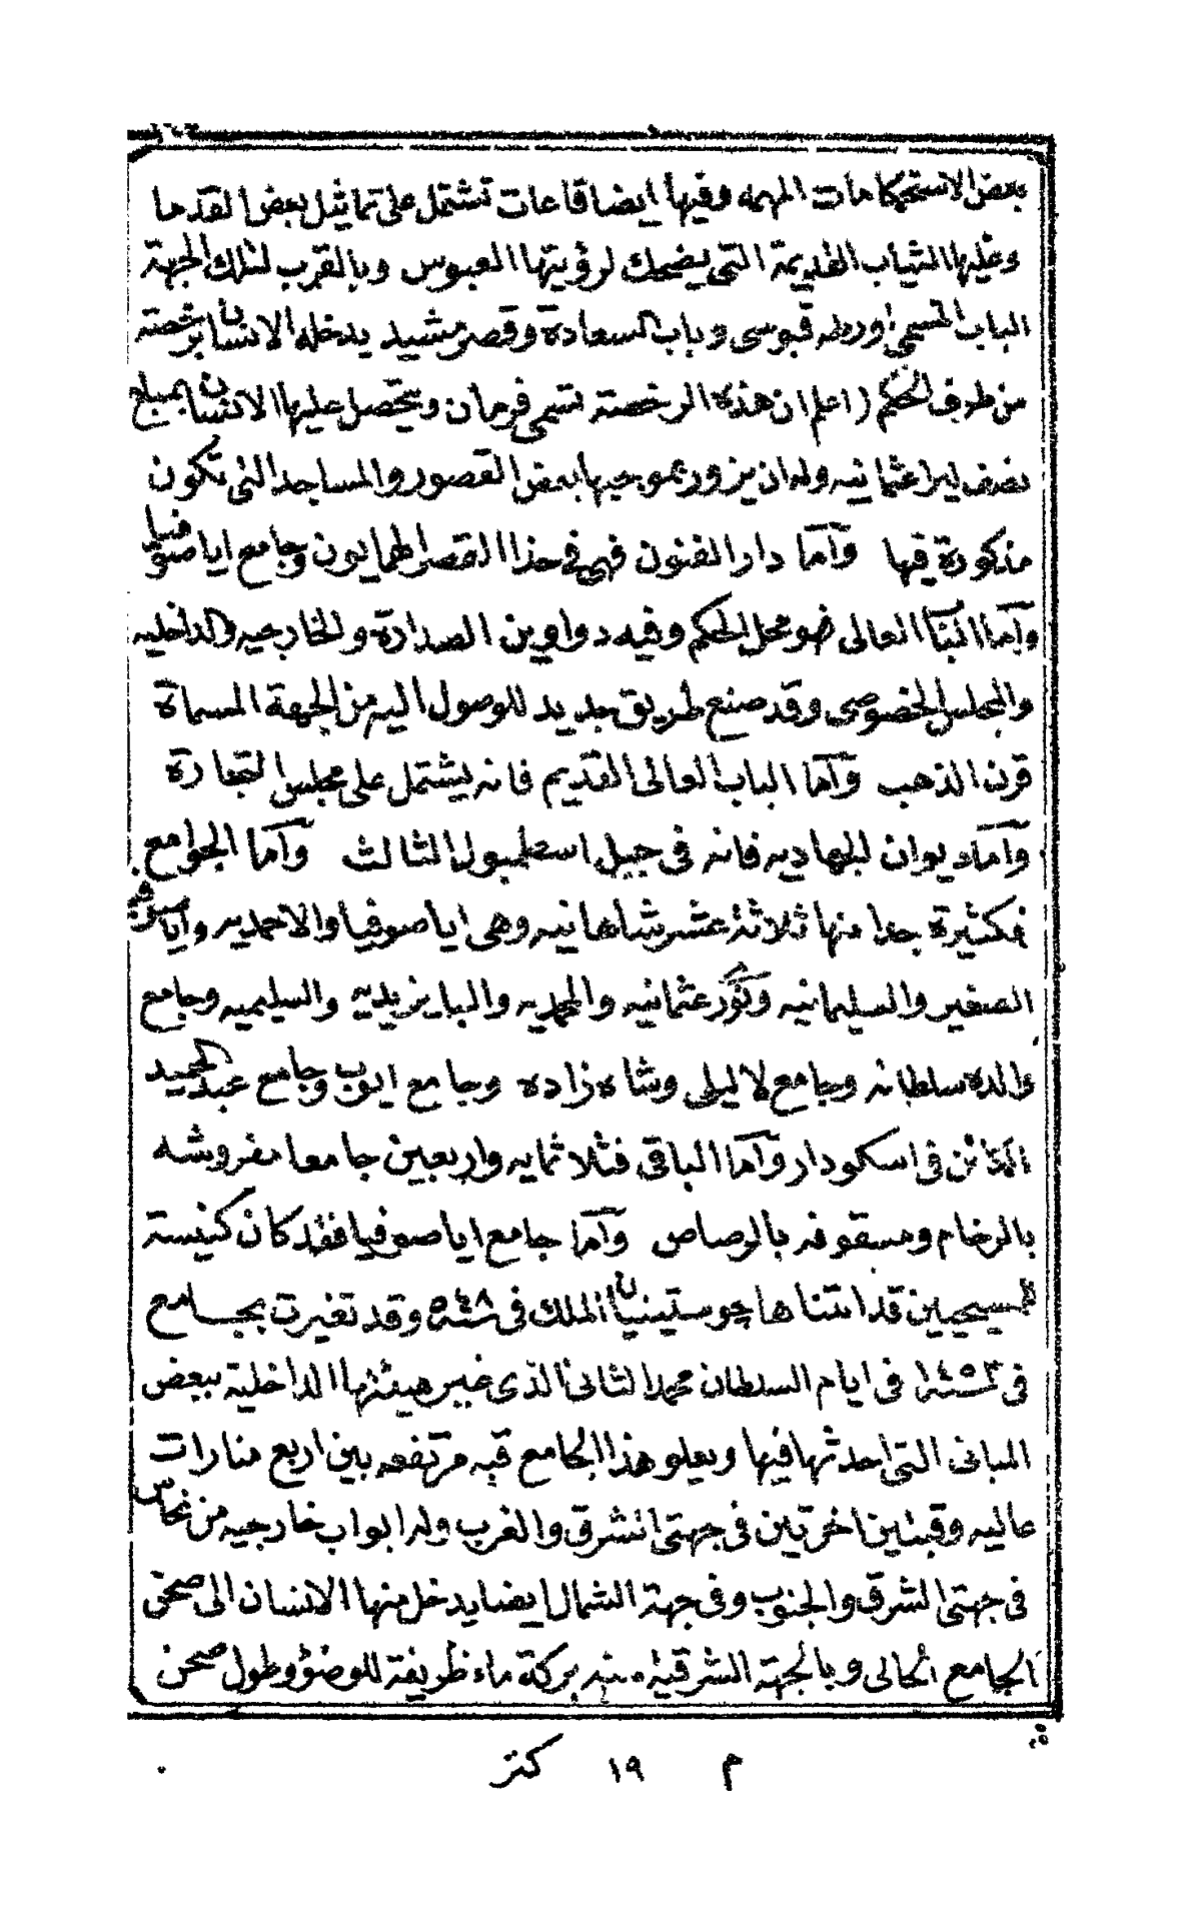 بعض الاستحكامات المهمه وفيها ايضا قاعات تشتمل على تماثيل بعض القدما
وعليها الثياب القديمة التى يضحك لرؤيتها العبوس وبالقرب لتلك الجهة
الباب المسمى اورطه قبوسى وباب السعادة وقصر مشيد يدخله الانسان برخصته
من طرف الحكم (اعلم ان هذه الرخصته تسمى فرمان ويتحصل عليها الانسان بمبلغ
نصف ليرا عثمانيه وله ان يزور بموجبها بعض القصور والمساجد التى تكون
مذكورة فيها وآما دار الفنون فهى فى حذا القصر الهمايون وجامع اياصوفيا
وآما البنآ العالى ضو محل الحكم وفيه دواوين الصدارة والخارجيه والداخليه
والمجلس الخصوصى وقد صنع طريق جديد للوصول اليه من الجهة المسماة
قرن الذهب وآما الباب العالى القديم فانه يشتمل على مجلس التجارة
وآما ديوان الجهاديه فانه فى جبل اسطمبول الثالث وآما الجوامع
فكثيرة جدا منها ثلاثة عشر شاهانيه وهى اياصوفيا والاحمديه واياصوفية
الصغير والسليمانيه ونور عثمانيه والمحمديه والبايزيديه والسليميه وجامع
والده سلطانه وجامع لاليلى وشاه زاده وجامع ايوب وجامع عبد الحميد
الكائن فى اسكودار وآما الباقى فثلاثمايه واربعين جامعا مفروشه
بالرخام ومسقوفه بالرصاص وآما جامع اياصوفيا فقد كان كنيسة
للمسيحيين قد ابتناها جوستينيان الملك فى سنة ٥٤٨ وقد تغيرت بجامع
فى سنة ١٤٥٣ فى ايام السلطان محمد الثانى الذى غير هيئتها الداخلية ببعض
المبانى التى احدثها فيها ويعلو هذا الجامع قبه مرتفعه بين اربع منارات
عاليه وقبتين اخرتين فى جهتى الشرق والغرب وله ابواب خارجيه من نحاس
فى جهتى الشرق والجنوب وفى جهة الشمال ايضا يدخل منها الانسان الى صحن
الجامع الحالى وبالجهة الشرقية منه بركة ماء ظريفة للوضؤ وطول صحن
م ١٩ كنز